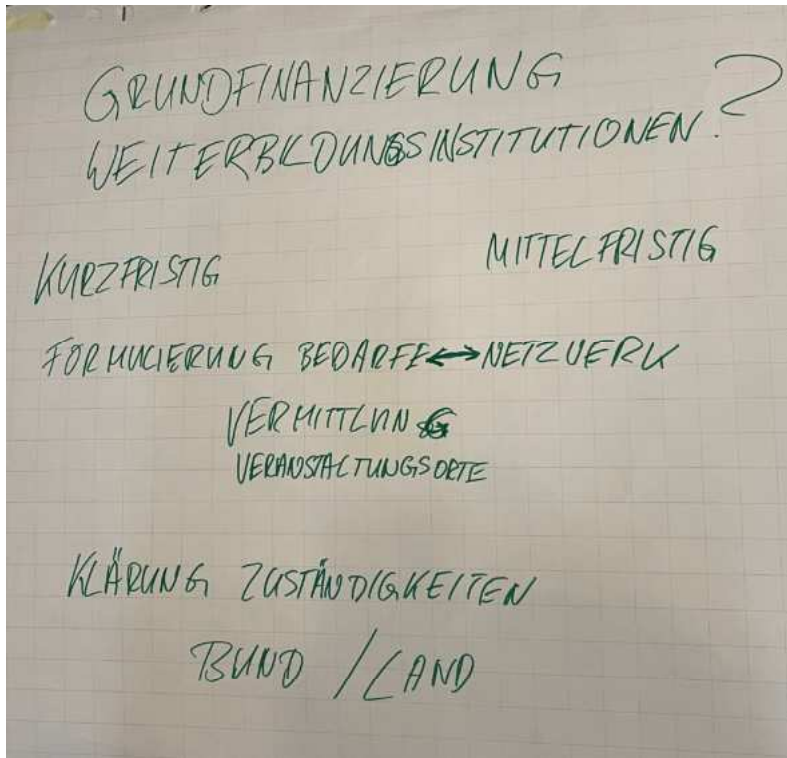 GRUNDFINANZIERUNG
WEITERBILDUNGSINSTITUTIONEN?
KURZFRISTIG MITTELFRISTIG
FORMULIERUNG BEDARFE ↔ NETZWERK
VERMITTLUNG
VERANSTALTUNGSORTE
KLÄRUNG ZUSTÄNDIGKEITEN
BUND / LAND